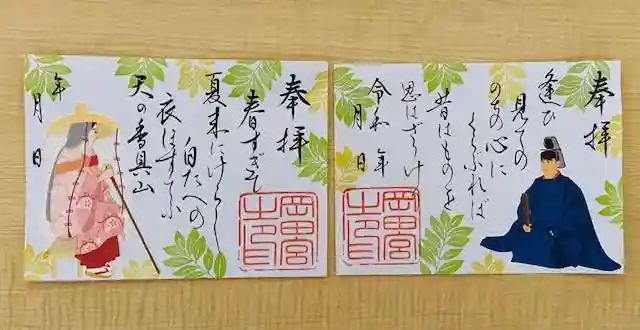 奉拝
逢ひ
見ての
のちの心に
くらぶれば
昔はものを
思はざりけり
令和 年
月 日
岡田宮
之印
奉拝
春すぎて
夏来にけらし
白たへの
衣ほすてふ
天の香具山
年
月 日
岡田宮
之印